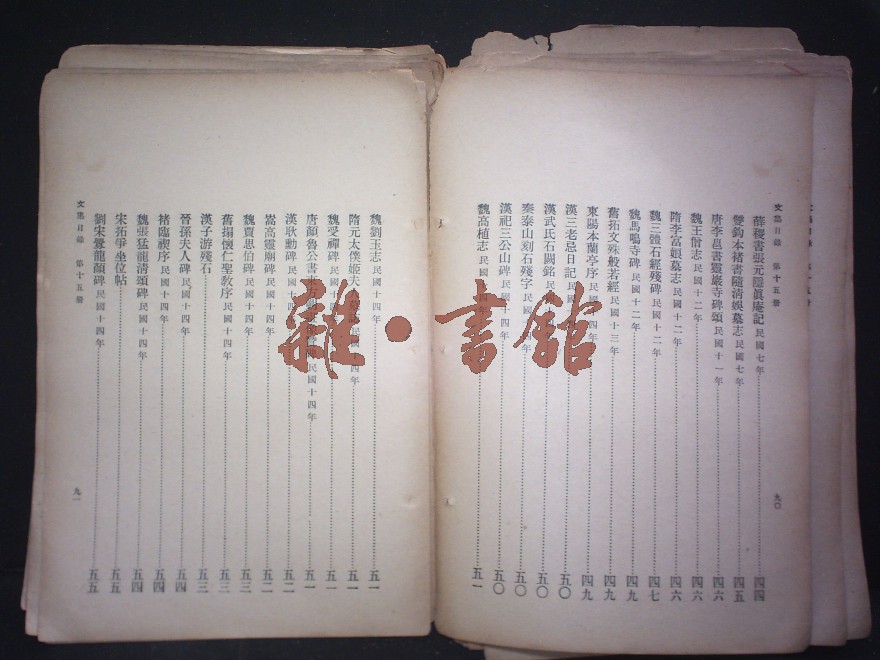 文集目錄 第十五冊 九〇
薛稷書張元隱眞庵記 民國七年 四四
雙鈎本褚書隨清娛墓志 民國七年 四五
唐李邕書靈巖寺碑頌 民國十一年 四六
魏王僧志 民國十二年 四六
隋李富娘墓志 民國十二年 四六
魏三體石經殘碑 民國十二年 四七
魏馬鳴寺碑 民國十二年 四九
舊拓文殊般若經 民國十三年 四九
東陽本蘭亭序 四年 四九
漢三老忌日記 民 五〇
漢武氏石闕銘 民 五〇
秦泰山刻石殘字 四年 五〇
漢祀三公山碑 民 四年 五〇
魏高植志 民國 四年 五一
魏劉玉志 民國十四年 五一
隋元太僕姬夫人 四年 五一
魏受禪碑 民國十四年 五一
唐顏魯公書東方 民國十四年 五一
漢耿勳碑 民國十四年 五二
嵩高靈廟碑 民國十四年 五二
魏賈思伯碑 民國十四年 五三
舊搨懷仁聖敎序 民國十四年 五三
漢子游殘石 五三
晉孫夫人碑 民國十四年 五四
褚臨禊序 民國十四年 五四
魏張猛龍清頌碑 民國十四年 五四
宋拓爭坐位帖 五五
劉宋爨龍顏碑 民國十四年 五五
文集目錄 第十五冊 九一
雜·書館